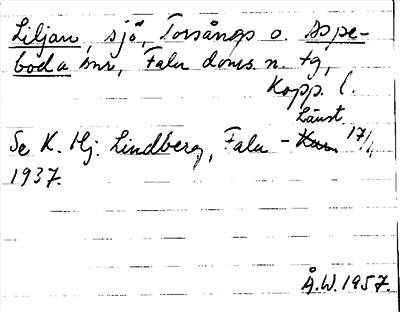 Liljan, sjö, Torsångs o. Aspe-
boda snr, Falu doms. n. tg,
Kopp. l.
Länst.
Se K. Hj. Lindberg, Falu - 17/4
1937.
Å.W. 1957.